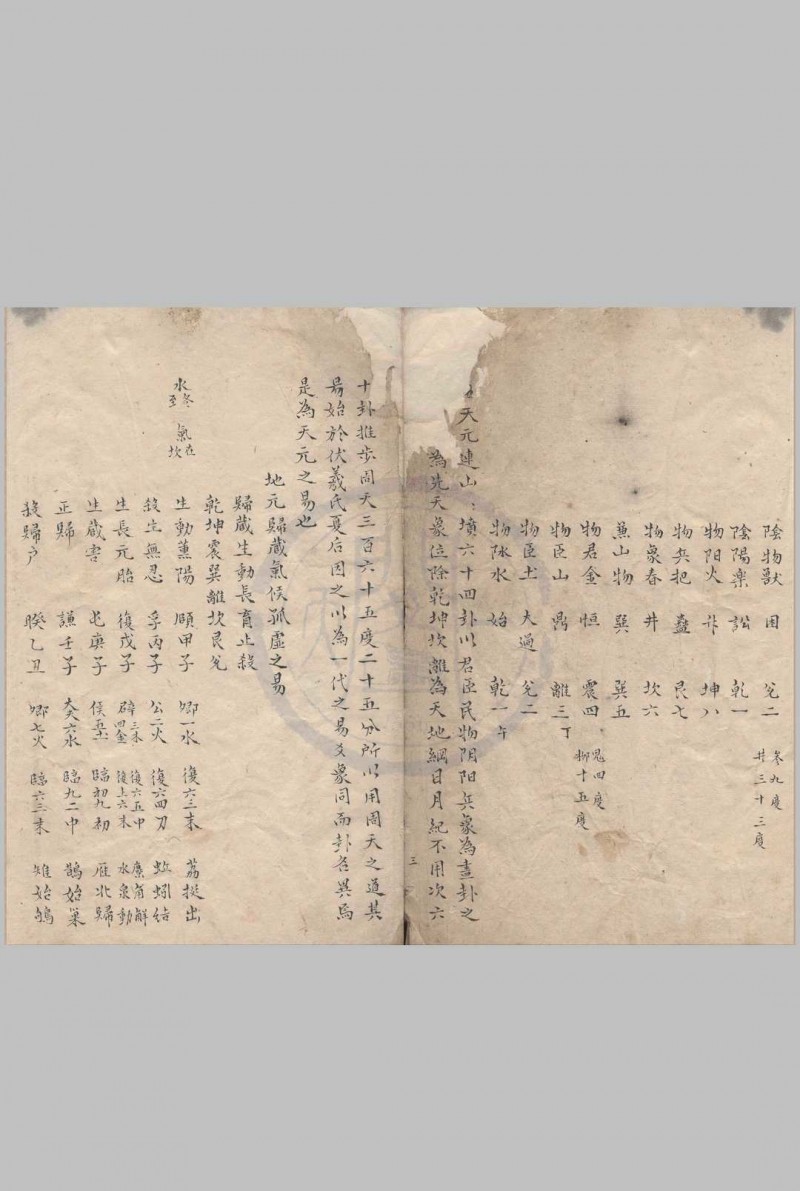 陰物獸　困　兌二　參九度
陰陽樂　訟　乾一　井三十三度
物陽火　升　坤八
物兵把　蠱　艮七
物象春　井　坎六
兼山物　巽　巽五
物君金　恒　震四　鬼四度
物臣山　鼎　離三丁　柳十五度
物臣土　大過　兌二
物脉水　姤　乾一午
天元連山　墳六十四卦以君臣民物陰陽兵象為畫卦之
為先天象位除乾坤坎離為天地綱日月紀不用次六
三
十卦推步周天三百六十五度二十五分所以用周天之道其
易始於伏羲氏夏后因之以為一代之易爻象同而卦名異焉
是為天元之易也
地元歸藏氣候孤虛之易
歸藏生動長育止殺
乾坤震巽離坎艮兌
水冬至　氣在坎
生動薰陽　頤甲子　卿一水　復六三末　荔挺出
殺生無忍　孚丙子　公二火　復六四刀　蚯蚓結
生長元胎　復戊子　辟三木四金　復六五中復上六末　麋角解水泉動
生藏害　屯庚子　侯五土　臨初九初　雁北歸
正歸　謙壬子　大夫六水　臨九二中　鵲始巢
殺歸户　睽乙丑　卿七火　臨六三末　雉始鴝